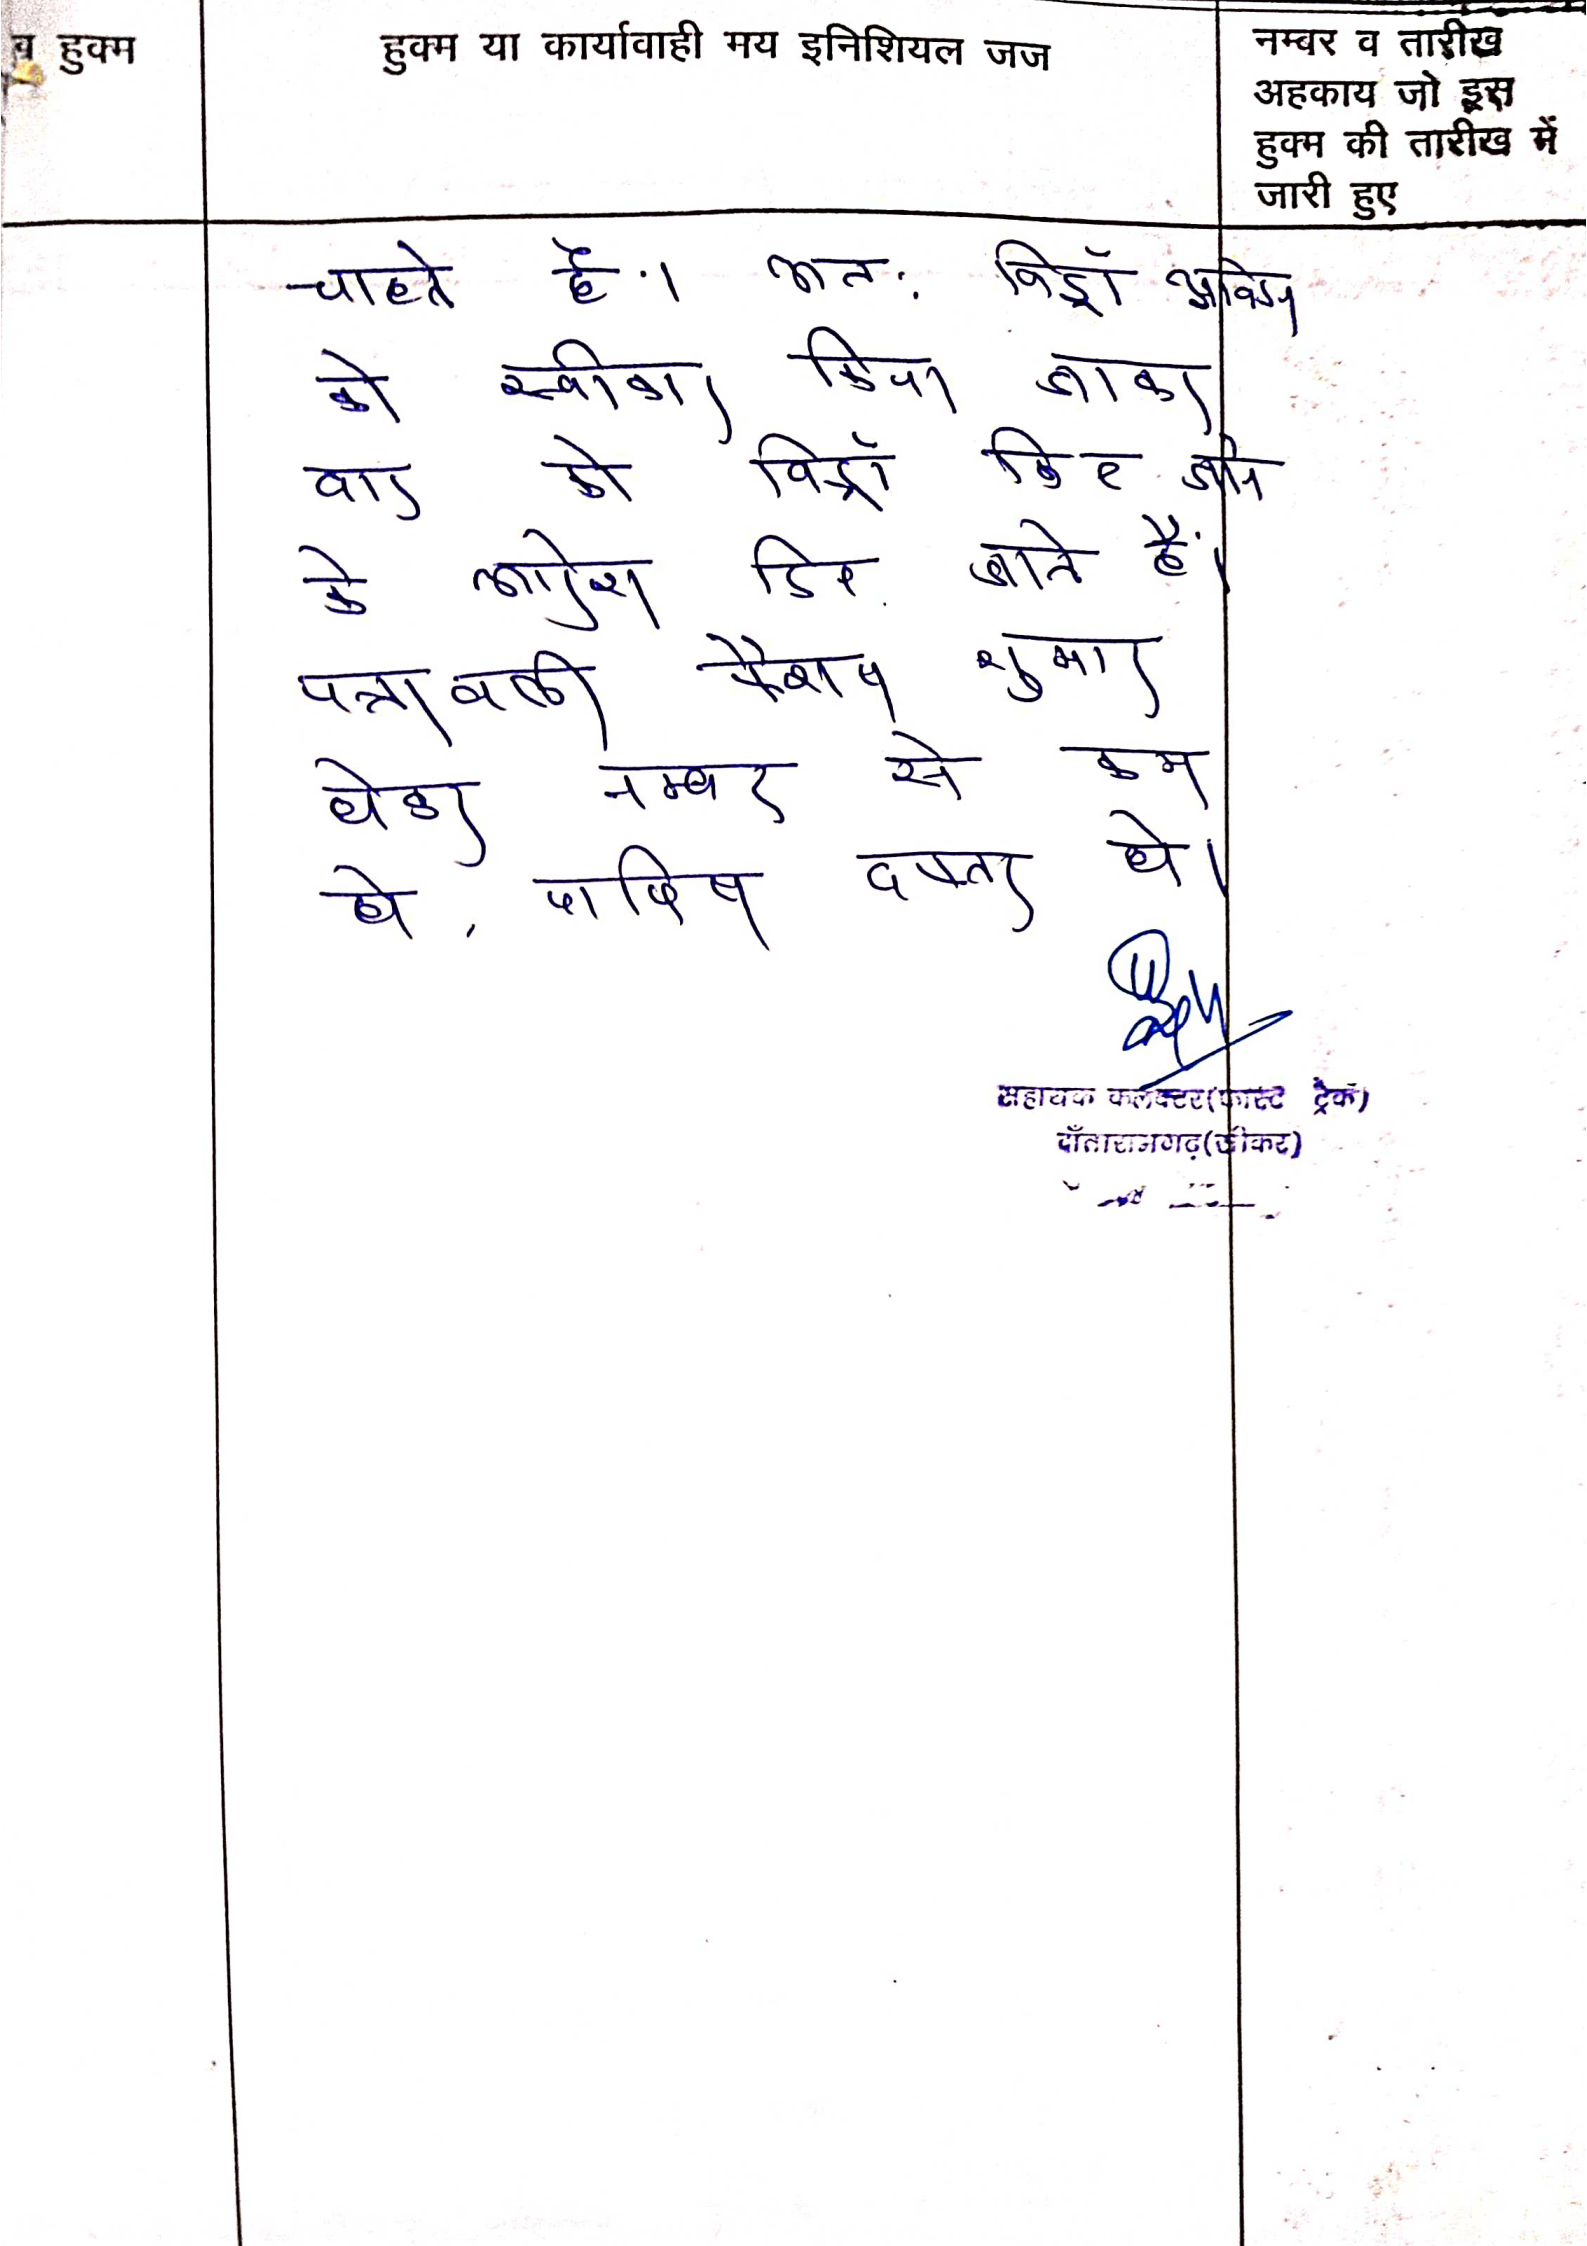 व हुक्म
हुक्म या कार्यावाही मय इनिशियल जज
नम्बर व तारीख
अहकाय जो इस
हुक्म की तारीख में
जारी हुए
चाहते हैं। अतः विड्रॉ
को स्वीकार किया जाकर
वाद को विड्रॉ किए जाने
के आदेश दिए जाते हैं।
पत्रावली फैसल शुमार
होकर नम्बर से कम
हो, दाखिल दफ्तर हो।
सहायक कलक्टर(फास्ट ट्रेक)
दाँतारामगढ़(सीकर)